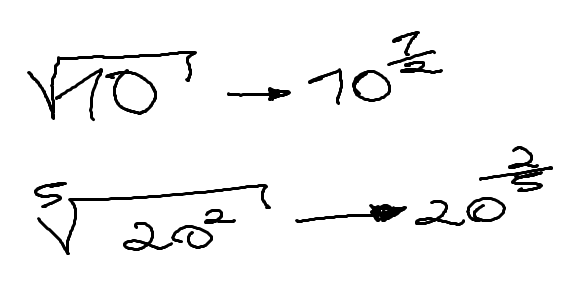 √10 → 10^(1/2)
⁵√20² → 20^(2/5)